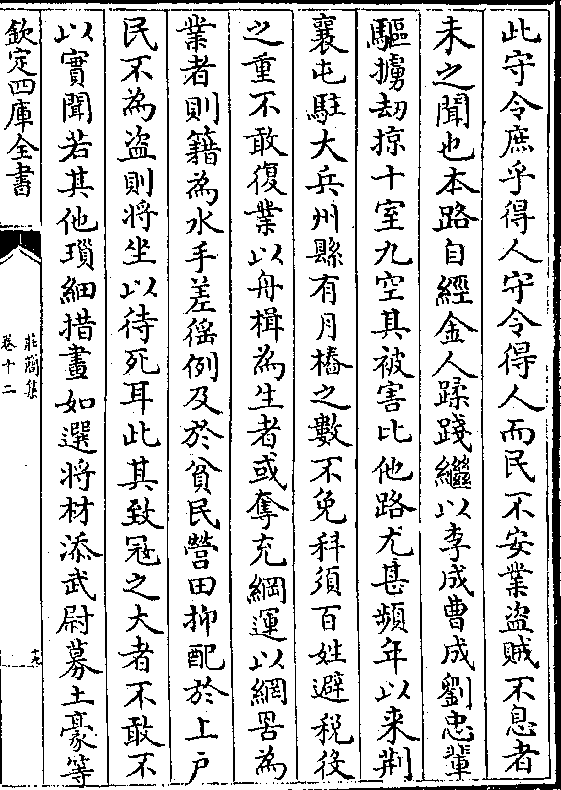 此守令庶乎得人守令得人而民不安業盗賊不息者
未之聞也本路自經金人蹂踐繼以李成曹成劉忠輩
驅擄刼掠十室九空其被害比他路尤甚頻年以来荆
襄屯駐大兵州縣有月樁之數不免科須百姓避税役
之重不敢復業以舟楫為生者或奪充綱運以網罟為
業者則籍為水手差徭例及於貧民營田抑配於上户
民不為盗則将坐以待死耳此其致冦之大者不敢不
以實聞若其他瑣細措畫如選将材添武尉募土豪等
欽定四庫全書
莊簡集
卷十二
十九